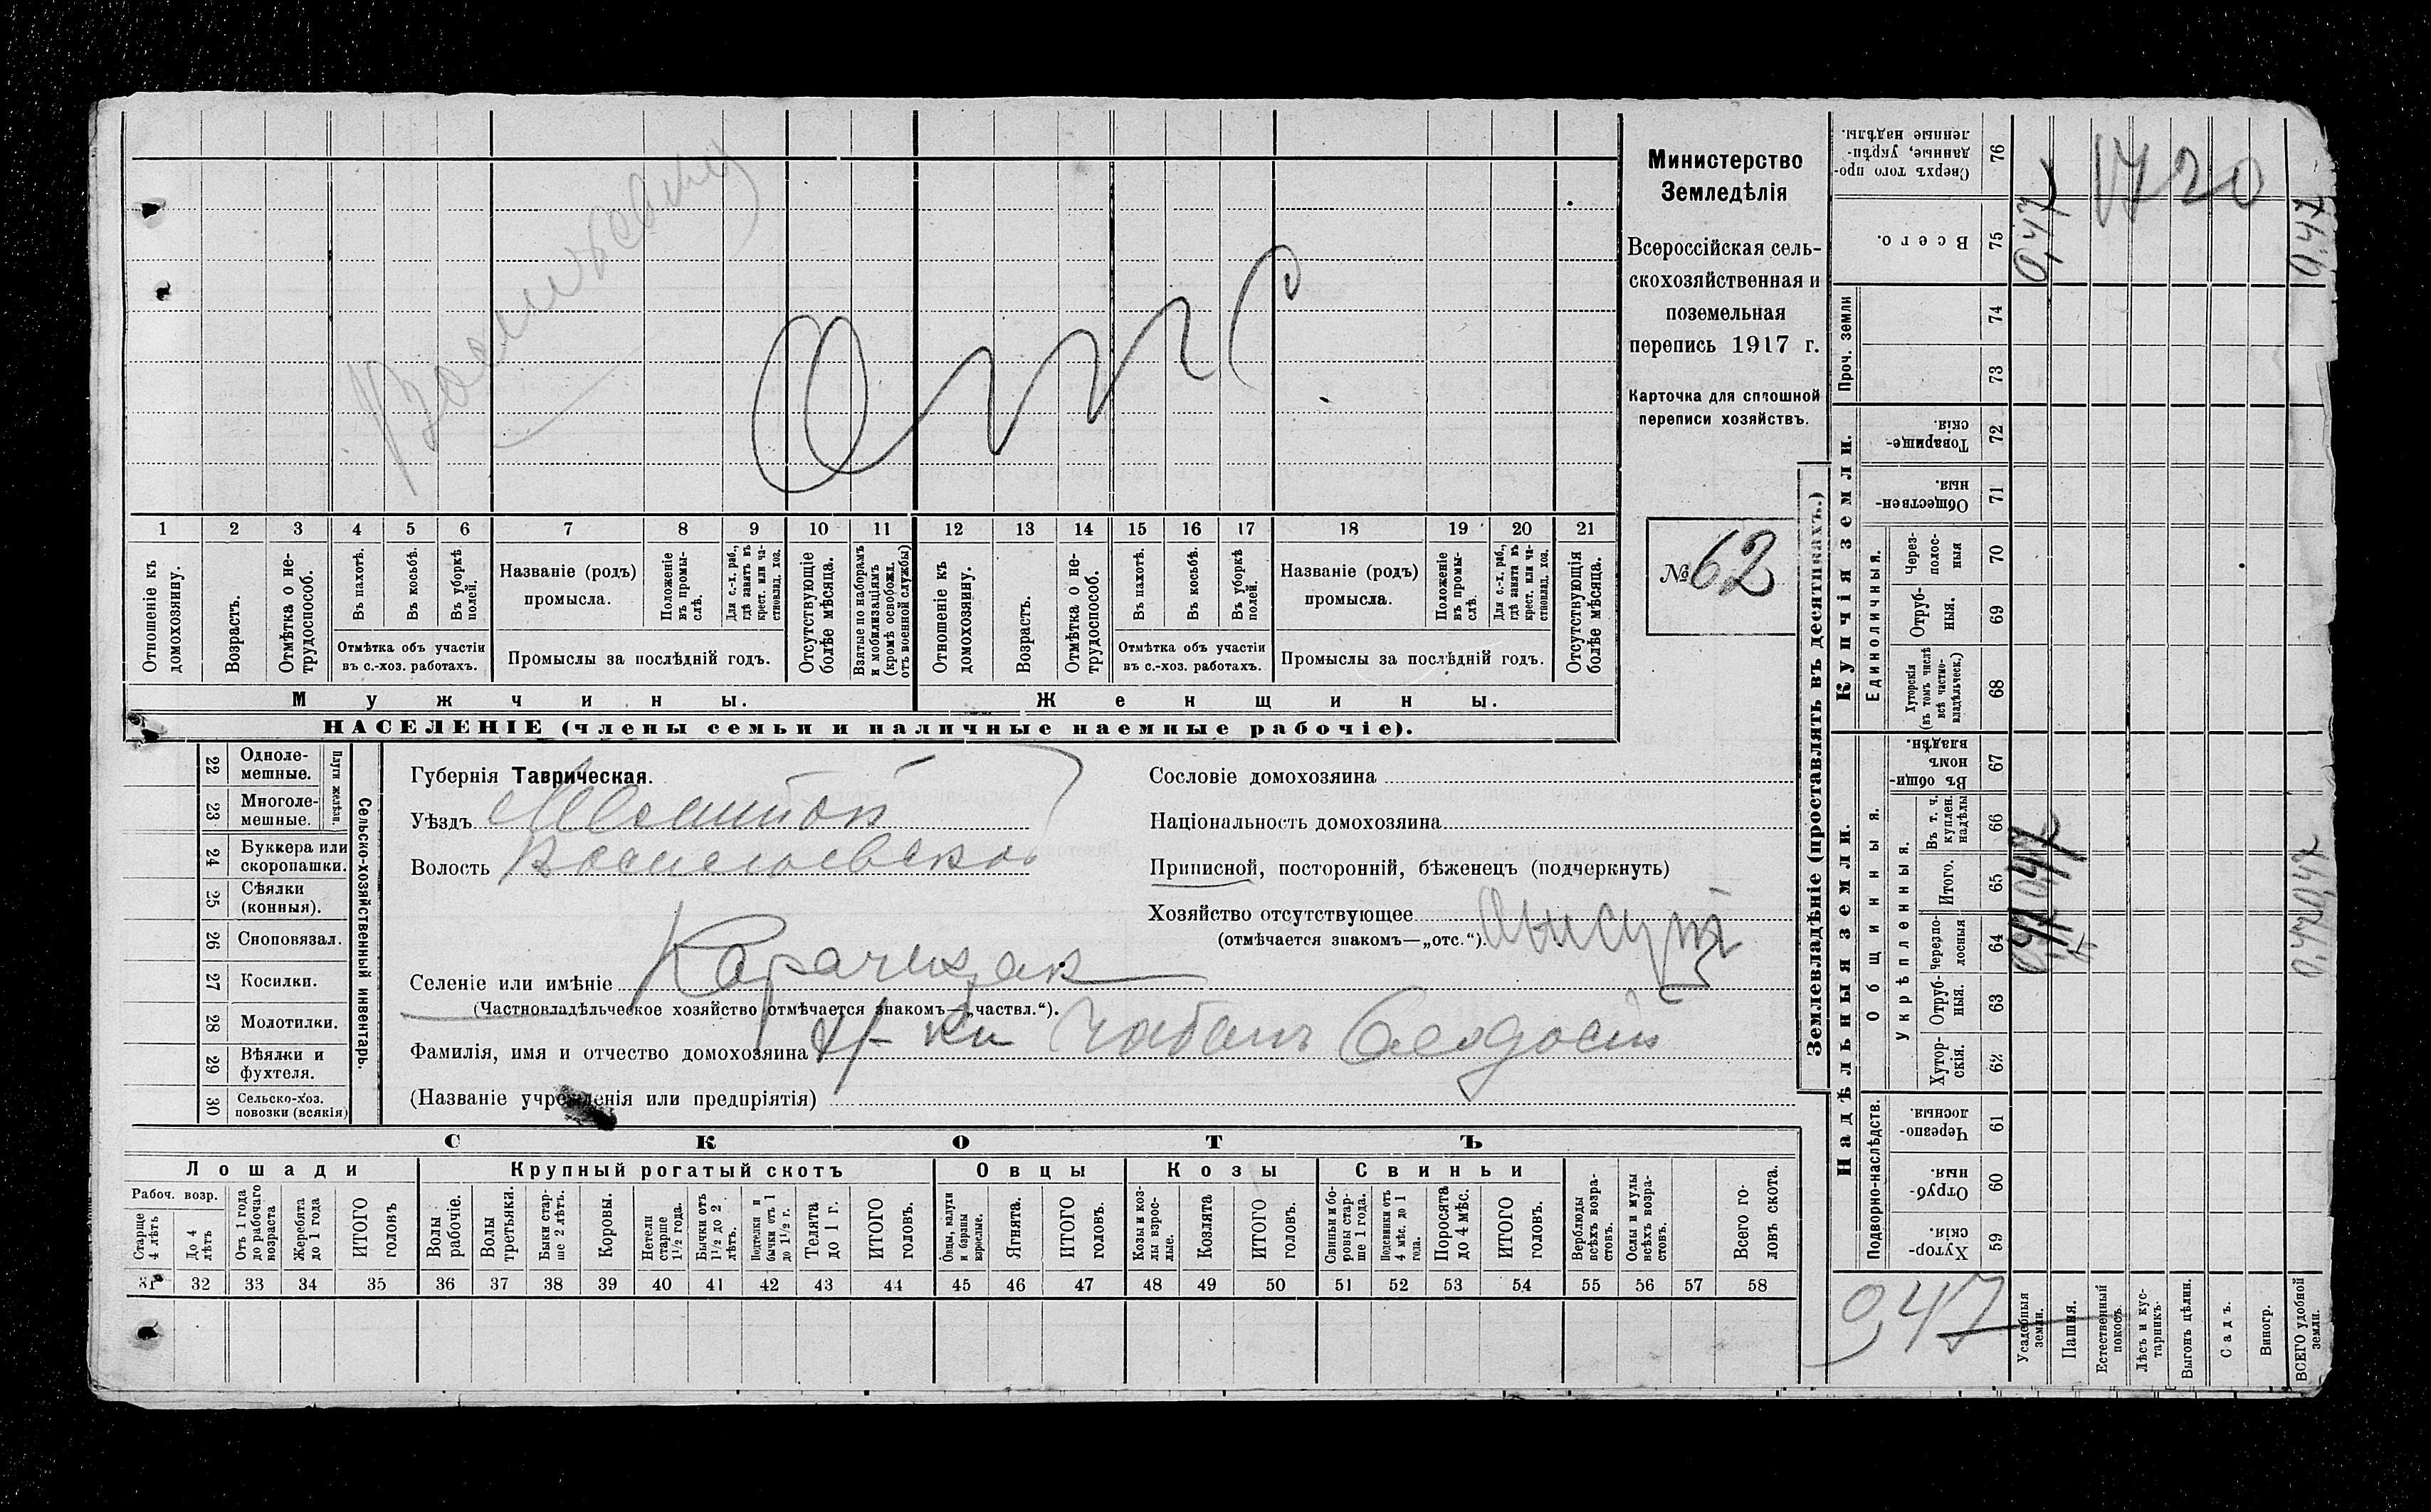 Министерство
Земледѣлія
Всероссійская сель-
скохозяйственная и
поземельная
перепись 1917 г.
Карточка для сплошной
переписи хозяйствъ.
№ 62
отс
1 2 3 4 5 6 7 8 9 10 11 12 13 14 15 16 17 18 19 20 21
Отношеніе къ домохозяину.
Возрастъ.
Отмѣтка о не-трудоспособ.
Въ пахотѣ.
Въ косьбѣ.
Въ уборкѣ полей.
Отмѣтка объ участіи
въ с.-хоз. работахъ.
Названіе (родъ)
промысла.
Положеніе въ промы-слѣ.
Для с.-х. раб., гдѣ занятъ въ крест. или ча-стновлад. хоз.
Промыслы за послѣдній годъ.
Отсутствующіе болѣе мѣсяца.
Взятые по наборамъ и мобилизаціямъ (кромѣ освобожд. отъ военной службы)
Отношеніе къ домохозяину.
Возрастъ.
Отмѣтка о не-трудоспособ.
Въ пахотѣ.
Въ косьбѣ.
Въ уборкѣ полей.
Отмѣтка объ участіи
въ с.-хоз. работахъ.
Названіе (родъ)
промысла.
Положеніе въ промы-слѣ.
Для с.-х. раб., гдѣ занята въ крест. или ча-стновлад. хоз.
Промыслы за послѣдній годъ.
Отсутствующія болѣе мѣсяца.
Мужчины. Женщины.
НАСЕЛЕНІЕ (члены семьи и наличные наемные рабочіе).
Сельско-хозяйственный инвентарь.
Плуги желѣзн.
22 Одноле-мешные.
23 Многоле-мешные.
24 Буккера или скоропашки.
25 Сѣялки (конныя).
26 Сноповязал.
27 Косилки.
28 Молотилки.
29 Вѣялки и фухтеля.
30 Сельско-хоз. повозки (всякія)
Губернія Таврическая.
Уѣздъ
Волость Васильевская
Селеніе или имѣніе Карачекрак
(Частновладѣльческое хозяйство отмѣчается знакомъ—„частвл.“).
Фамилія, имя и отчество домохозяина Чабан Феодосій
(Названіе учрежденія или предпріятія)
Сословіе домохозяина
Національность домохозяина
Приписной, посторонній, бѣженецъ (подчеркнуть)
Хозяйство отсутствующее
(отмѣчается знакомъ—„отс.“).
СКОТЪ
Лошади Крупный рогатый скотъ Овцы Козы Свиньи
Рабоч. возр.
Старше 4 лѣтъ
До 4 лѣтъ
Отъ 1 года до рабочаго возраста
Жеребята до 1 года
ИТОГО головъ
Волы рабочіе.
Волы третьяки.
Быки стар-ше 2 лѣтъ.
Коровы.
Нетели старше 1½ года.
Бычки отъ 1½ до 2 лѣтъ.
Подтелки и бычки отъ 1 до 1½ г.
Телята до 1 г.
ИТОГО головъ.
Овцы, валухи и бараны взрослые.
Ягнята.
ИТОГО головъ.
Козы и коз-лы взрос-лые.
Козлята
ИТОГО головъ.
Свиньи и бо-ровы стар-ше 1 года.
Подсвинки отъ 4 мѣс. до 1 года.
Поросята до 4 мѣс.
ИТОГО головъ.
Верблюды всѣхъ возра-стовъ.
Ослы и мулы всѣхъ возра-стовъ.
Всего го-ловъ скота.
31 32 33 34 35 36 37 38 39 40 41 42 43 44 45 46 47 48 49 50 51 52 53 54 55 56 57 58
Землевладѣніе (проставлять въ десятинахъ.)
Сверхъ того про-данные, укрѣп-ленные надѣлы. 76
Всего. 75
Проч. земли 74
73
Купчія земли.
Товарище-скія. 72
Обществен-ныя. 71
Единоличныя.
Через-полос-ныя 70
Отруб-ныя. 69
Хуторскія (въ томъ числѣ всѣ частно-владѣльческ.) 68
Надѣльныя земли.
Общинныя.
Въ общи-номъ владѣн. 67
Укрѣпленныя.
Въ т. ч. куплен. надѣлы 66
Итого. 65
Черезпо-лосныя 64
Отруб-ныя. 63
Хутор-скія. 62
Подворно-наслѣдств.
Черезпо-лосныя. 61
Отруб-ныя. 60
Хутор-скія. 59
Усадебныя земли.
Пашня.
Естественный покосъ.
Лѣсъ и кус-тарникъ.
Выгонъ цѣлин.
Садъ.
Виногр.
ВСЕГО удобной земли.
1720
0,47
0,47
0,47
0,47
0,47
0,47
0,47